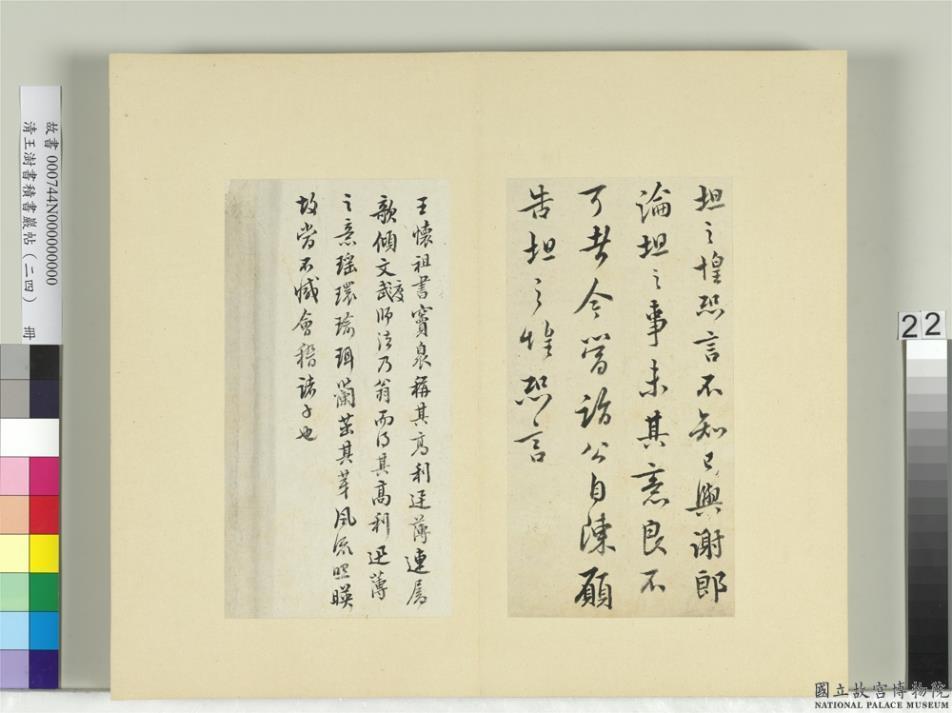 坦之惶恐言不知已與謝郎
論坦之事未其意良不
可者今當詣公自陳願
告坦之惶恐言
王懷祖書竇泉稱其高利迅薄連屬
欹傾文武度師法乃翁而得其高利迅薄
之意瑤環瑜珥蘭茁其芽風流照暎
故當不慽會稽諸子也
故書 000744N000000000
清王澍書積書巖帖(二四) 冊
22
國立故宮博物院
NATIONAL PALACE MUSEUM